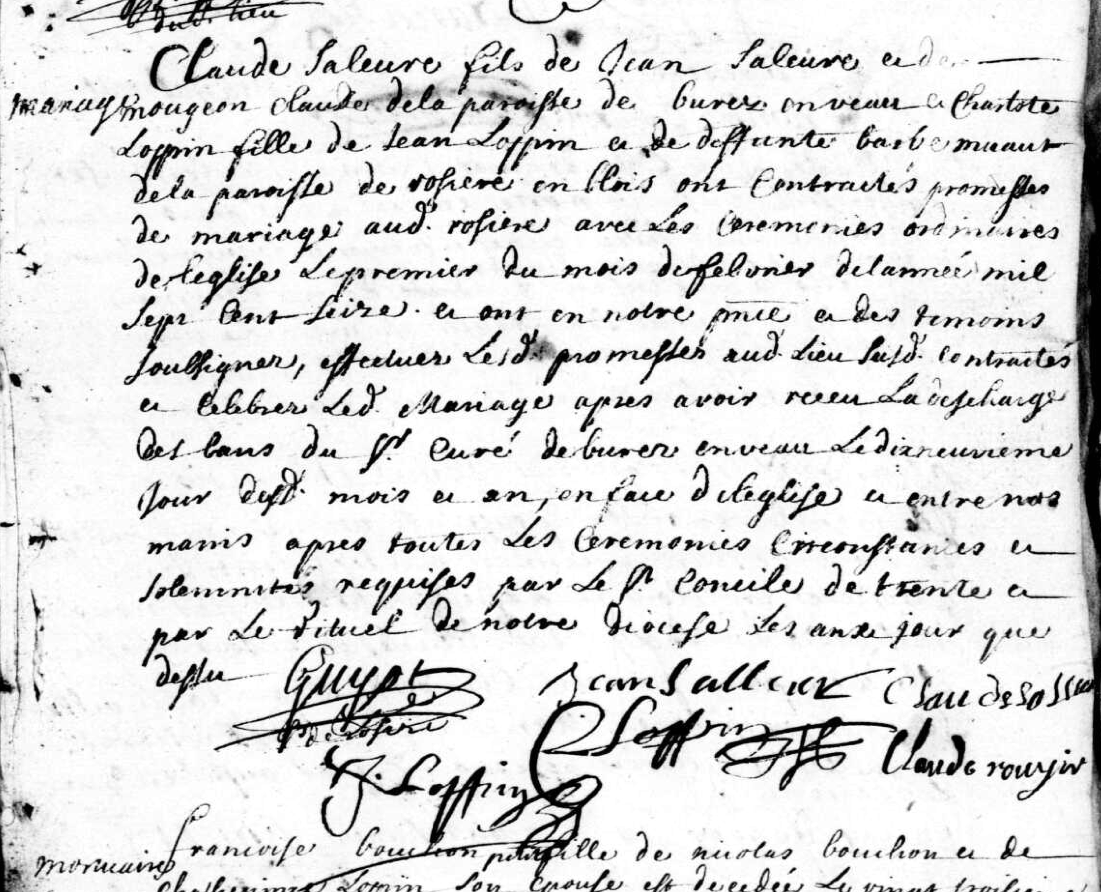 dud. lieu
Claude Saleure fils de Jean Saleure et de
mariage mougeon Claude dela paroisse de burez enveau et Charlote
Loppin fille de Jean Loppin et de deffunte barbe muaut
dela paroisse de rosiere en blois ont Contractés promesses
de mariage aud. rosiere avec Les Ceremonies ordinaires
de leglise Lepremier du mois defebvrier delannée mil
Sept Cent Seize. et ont en notre pnce et des temoins
soubsignez, effectuer Lesd. promesses aud. Lieu Susd. Contractés
et Celebrez Led. Mariage apres avoir receu La descharge
des bans du Sr. Curé deburez enveau Ledixneuvieme
Jour dusd. mois et an, en face de leglise et entre nos
mains apres toutes Les Ceremonies Circonstances et
solemnités requises par Le St Concile de trente et
par Le rituel de notre diocese Les an et jour que
dessu Guyot Jean Salleur Claude
C Loppin
Claude
J. Loppin
Francoise bouchon fille de nicolas bouchon et de
mortuaire
Loppin son epouse est decedée Le vingt